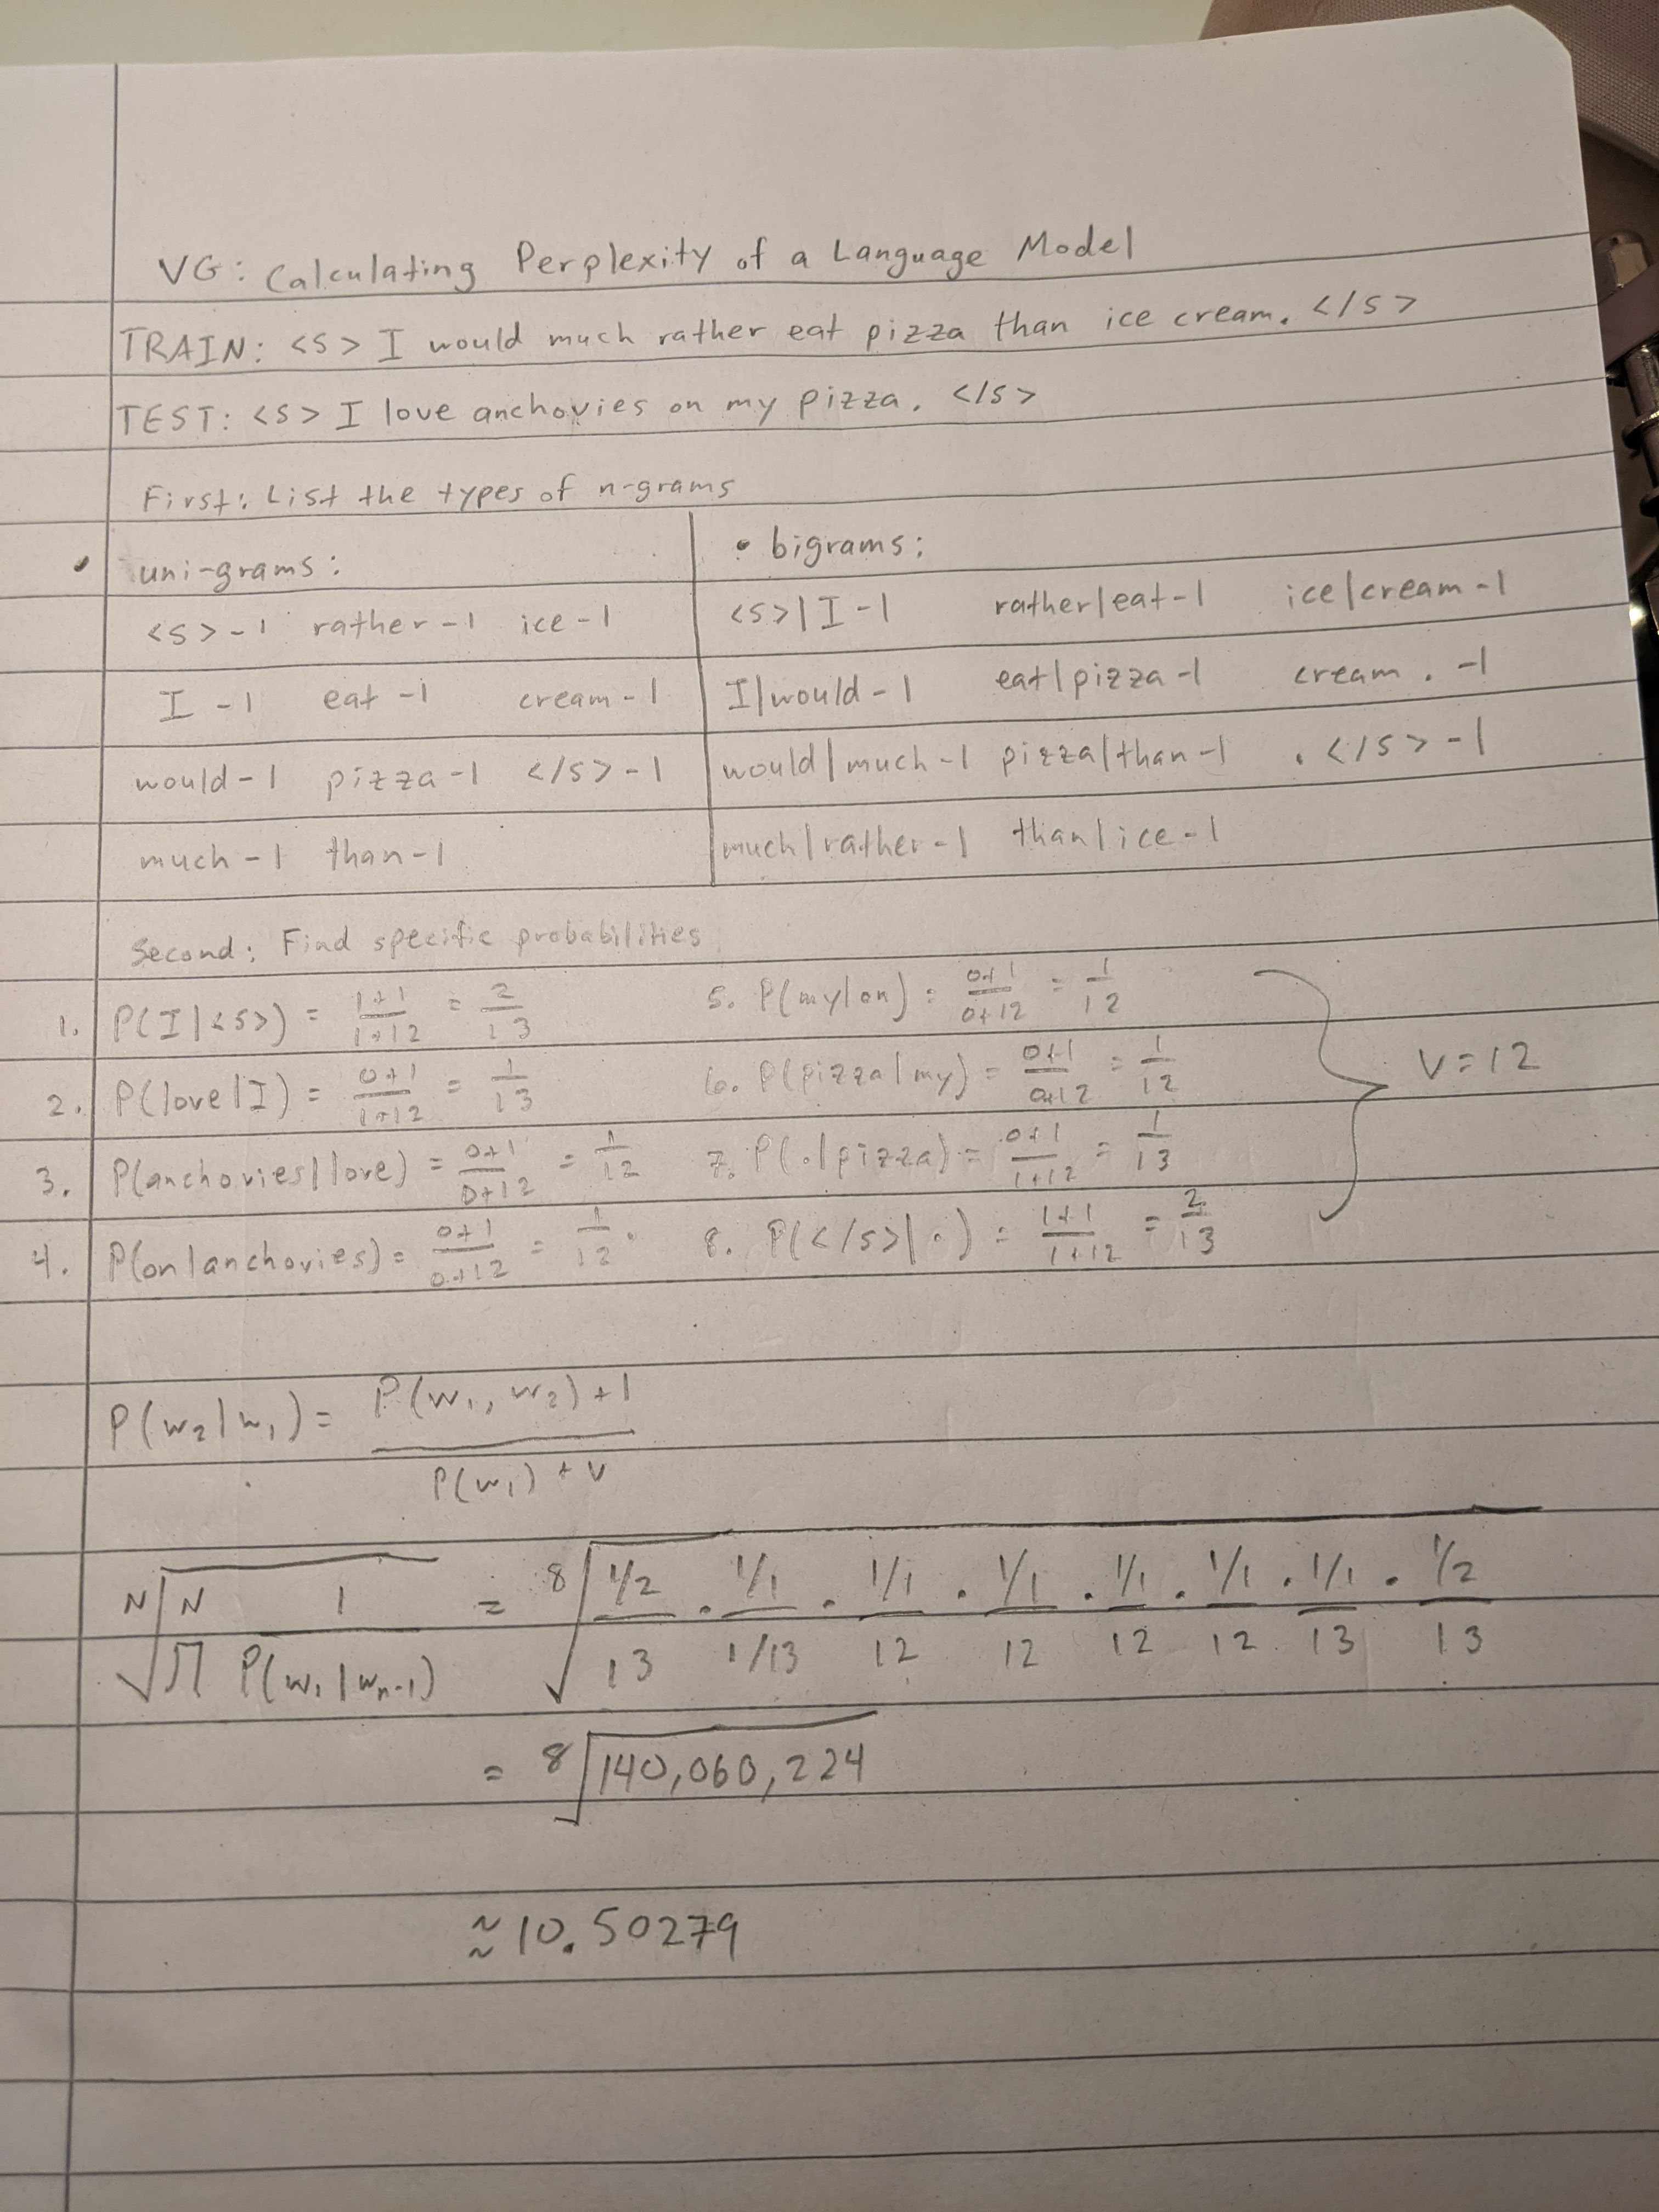 VG: Calculating Perplexity of a Language Model
TRAIN: <S> I would much rather eat pizza than ice cream. </S>
TEST: <S> I love anchovies on my pizza. </S>
First: List the types of n-grams
• uni-grams:
<S> -1 rather -1 ice -1
I -1 eat -1 cream -1
would -1 pizza -1 </S> -1
much -1 than -1
• bigrams:
<S>|I -1 rather|eat -1 ice|cream -1
I|would -1 eat|pizza -1 cream . -1
would|much -1 pizza|than -1 . </S> -1
much|rather -1 than|ice -1
Second: Find specific probabilities
1. P(I|<S>) = 1+1/1+12 = 2/13
2. P(love|I) = 0+1/1+12 = 1/13
3. P(anchovies|love) = 0+1/0+12 = 1/12
4. P(on|anchovies) = 0+1/0+12 = 1/12
5. P(my|on) = 0+1/0+12 = 1/12
6. P(pizza|my) = 0+1/0+12 = 1/12
7. P(.|pizza) = 0+1/1+12 = 1/13
8. P(</S>|.) = 1+1/1+12 = 2/13
V=12
P(w₂|w₁) = P(w₁, w₂)+1
P(w₁) + V
N√ N Π 1/P(wₙ|wₙ₋₁) = 8√ 1/2/13 · 1/1/1/13 · 1/1/12 · 1/1/12 · 1/1/12 · 1/1/12 · 1/1/13 · 1/2/13
= 8√140,060,224
≈ 10.50279